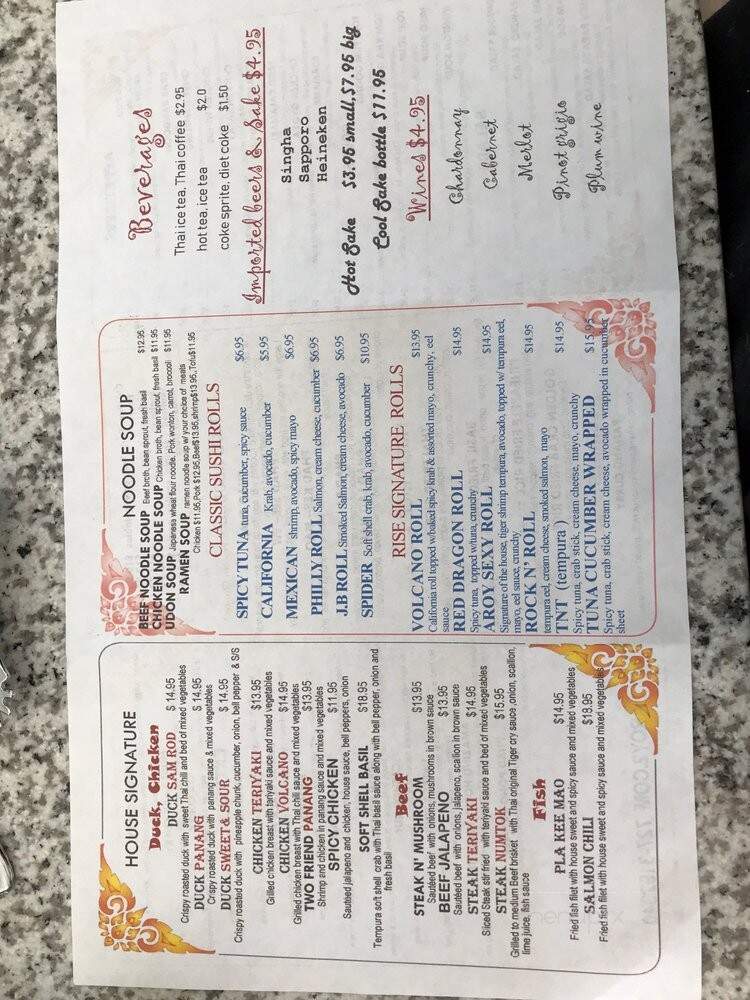 HOUSE SIGNATURE
Duck, Chicken
DUCK SAM ROD $ 14.95
Crispy roasted duck with sweet Thai chili and bed of mixed vegetables
DUCK PANANG $ 14.95
Crispy roasted duck with panang sauce & mixed vegetables
DUCK SWEET & SOUR $ 14.95
Crispy roasted duck with pineapple chunk, cucumber, onion, bell pepper & S/S
CHICKEN TERIYAKI $13.95
Grilled chicken breast with tariyaki sauce and mixed vegetables
CHICKEN VOLCANO $14.95
Grilled chicken breast with Thai chili sauce and mixed vegetables
TWO FRIEND PANANG $13.95
Shrimp and chicken in panang sauce and mixed vegetables
SPICY CHICKEN $11.95
Sautéed jalapeno and chicken, house sauce, bell peppers, onion
SOFT SHELL BASIL $18.95
Tempura soft shell crab with Thai basil sauce along with bell pepper, onion and
fresh basil
Beef
STEAK N' MUSHROOM $13.95
Sautéed beef with onions, mushrooms in brown sauce
BEEF JALAPENO $13.95
Sautéed beef with onions, jalapeno, scallion in brown sauce
STEAK TERIYAKI $14.95
Sliced Steak stir fried with teriyaki sauce and bed of mixed vegetables
STEAK NUMTOK $15.95
Grilled to medium Beef brisket with Thai original Tiger cry sauce ,onion, scallion,
lime juice, fish sauce
Fish
PLA KEE MAO $14.95
Fried fish filet with house sweet and spicy sauce and mixed vegetables
SALMON CHILI $18.95
Fried fish filet with house sweet and spicy sauce and mixed vegetables
NOODLE SOUP
BEEF NOODLE SOUP Beef broth, bean sprout, fresh basil $12.95
CHICKEN NOODLE SOUP Chicken broth, bean sprout, fresh basil $11.95
UDON SOUP Japanese wheat flour noodle. Pork wonton, carrot, broccoli $11.95
RAMEN SOUP ramen noodle soup w/ your choice of meats
Chicken $11.95, Pork $12.95, Beef$13.95, shrimp$13.95, Tofu$11.95
CLASSIC SUSHI ROLLS
SPICY TUNA tuna, cucumber, spicy sauce $6.95
CALIFORNIA Krab, avocado, cucumber $5.95
MEXICAN shrimp, avocado, spicy mayo $6.95
PHILLY ROLL Salmon, cream cheese, cucumber $6.95
J.B ROLL Smoked Salmon, cream cheese, avocado $6.95
SPIDER Soft shell crab, krab, avocado, cucumber $10.95
RISE SIGNATURE ROLLS
VOLCANO ROLL $13.95
California roll topped w/baked spicy krab & assorted mayo, crunchy, eel
sauce
RED DRAGON ROLL $14.95
Spicy tuna, topped w/tuna, crunchy
AROY SEXY ROLL $14.95
Signature of the house, tiger shrimp tempura, avocado, topped w/ tempura eel,
mayo, eel sauce, crunchy
ROCK N' ROLL $14.95
tempura eel, cream cheese, smoked salmon, mayo
TNT (tempura ) $14.95
Spicy tuna, crab stick, cream cheese, mayo, crunchy
TUNA CUCUMBER WRAPPED $15.95
Spicy tuna, crab stick, cream cheese, avocado wrapped in cucumber
sheet
Beverages
Thai ice tea, Thai coffee $2.95
hot tea, ice tea $2.0
coke sprite, diet coke $1.50
Imported beers & Sake $4.95
Singha
Sapporo
Heineken
Hot Sake $3.95 small, $7.95 big
Cool Sake bottle $11.95
Wines $4.95
Chardonnay
Cabernet
Merlot
Pinot grigio
Plum wine